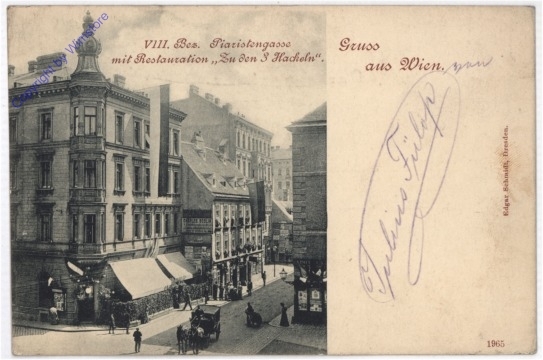 Copyright by Winstore
VIII. Bez. Piaristengasse
mit Restauration „Zu den 3 Hackeln“.
Gruss
aus Wien.
von
Julius Fülöp
Edgar Schmidt, Dresden.
1965